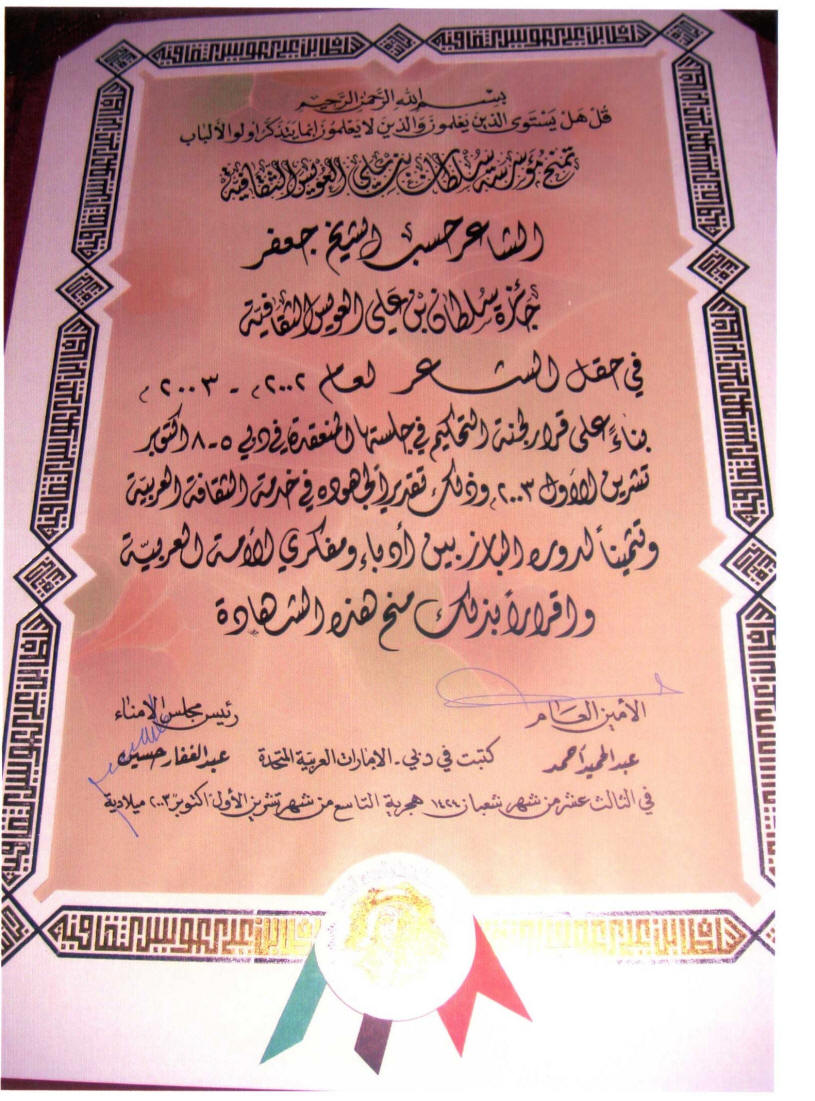 بسم الله الرحمن الرحيم
قل هل يستوى الذين يعلمون والذين لا يعلمون انما يتذكر اولو الألباب
تمنح مؤسسة سلطان بن علي العويس الثقافية
الشاعر حسب الشيخ جعفر
جائزة سلطان بن علي العويس الثقافية
في حقل الشـــاعر لعام ٢٠٠٢م - ٢٠٠٣م
بناءً على قرار لجنة التحكيم في جلستها المنعقدة في دبي ٥-٨ اكتوبر
تشرين الأول ٢٠٠٣م وذلك تقديراً لجهوده في خدمة الثقافة العربية
وتثميناً لدوره البارز بين أدباء ومفكري الأمة العربية
واقراراً بذلك منح هذه الشهادة
الأمين العام
رئيس مجلس الامناء
عبد الحميد أحمد
كتبت في دبي - الامارات العربية المتحدة
عبد الغفار حسين
في الثالث عشر من شهر شعبان ١٤٢٤ هجرية التاسع من شهر تشرين الأول اكتوبر ٢٠٠٣ ميلادية